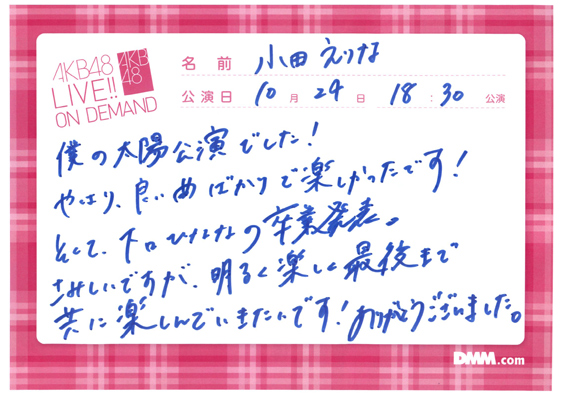 AKB48
LIVE!!
ON DEMAND
AKB
48
名前 小田えりな
公演日 10月24日 18:30公演
僕の太陽公演でした!
やはり、良いめばかりで楽しかったです!
そして、下口ひななの卒業発表。
さみしいですが、明るく楽しく最後まで
共に楽しんでいきたいです!ありがとうございました。
DMM.com